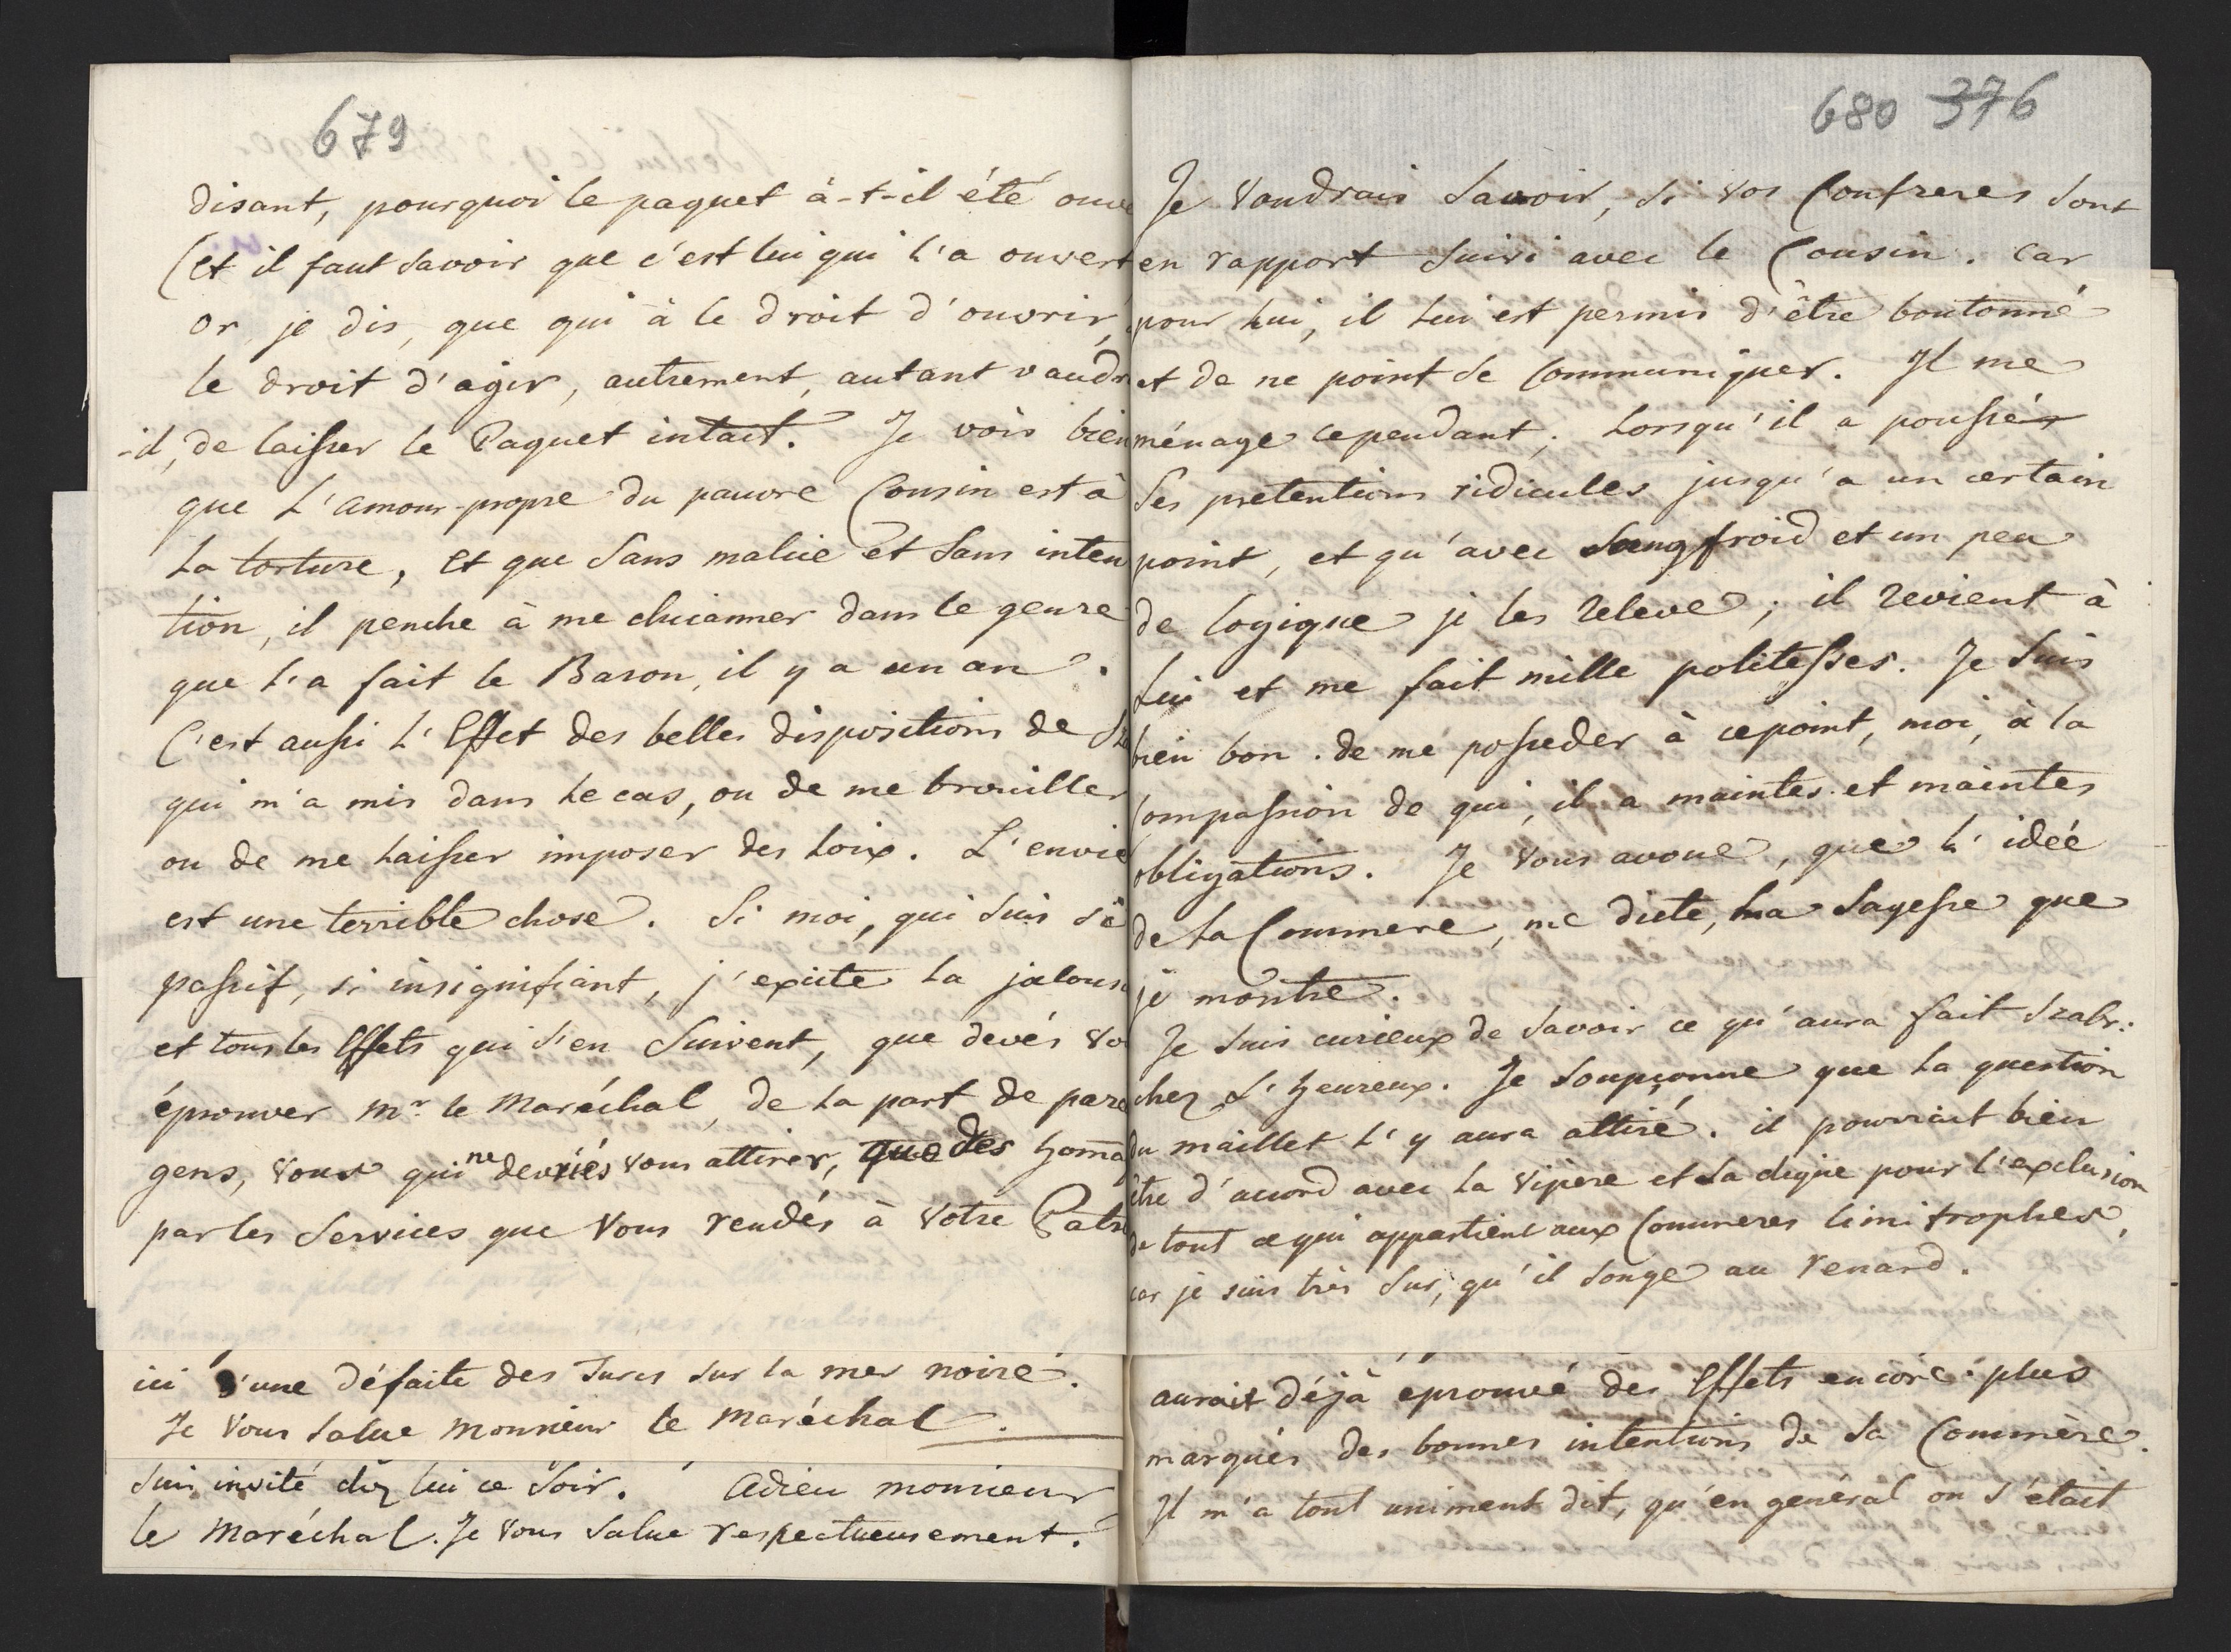 679
disant, pourquoi le paquet à-t-il été ouve
(et il faut savoir que c'est lui qui l'a ouvert
or je dis, que qui à le droit d'ouvrir,
le droit d'agir, autrement, autant vaudr
-il, de laisser le Paquet intact. Je vois bien
que l'amour-propre du pauvre Cousin est à
la torture, et que sans malice et sans inten
tion, il penche à me chicanner dans le genre
que l'a fait le Baron, il y a un an.
C'est aussi l'Effet des belles dispositions de
qui m'a mis dans le cas, ou de me brouiller
ou de me laisser imposer des loix. L'envie
est une terrible chose. Si moi, qui suis si
passif, si insignifiant, j'excite la jalous
et tous les Effets qui s'en suivent, que devés vo
éprouver Mr. le Maréchal, de la part de pare
gens, vous qui ne devriés vous attirer, que des homa
par les Services que vous rendés à votre Patri
ici d'une défaite des Turcs sur la mer noire.
Je vous salue Monsieur le Maréchal.
suis invité chez lui ce soir. Adieu monsieur
le Maréchal. Je vous salue respectueusement.
680 376
Je voudrais savoir, si vos Confreres sont
en rapport suivi avec le Cousin. car
pour lui, il lui est permis d'être boutonné
et de ne point se communiquer. Il me
ménage cependant, lorsqu'il a poussé
ses pretentions ridicules jusqu'a un certain
point, et qu'avec sang froid et un peu
de logique je les releve; il revient à
lui et me fait mille politesses. Je suis
bien bon de me posseder à ce point, moi, à la
compassion de qui, il a maintes et maintes
obligations. Je vous avoue, que l'idée
de la Commere, me dicte, la sagesse que
je montre.
Je suis curieux de savoir ce qu'aura fait Szabr:
chez L'heureux. Je soupçonne que la question
du maillet l'y aura attiré. il pourrait bien
être d'accord avec la vipere et sa clique pour l'exclusion
de tout ce qui appartient aux Commeres limitrophes,
car je suis très sur, qu'il songe au renard.
aurait déjà éprouvé des Effets encore plus
marqués des bonnes intentions de sa Commère.
Il m'a tout uniment dit, qu'en general on s'était